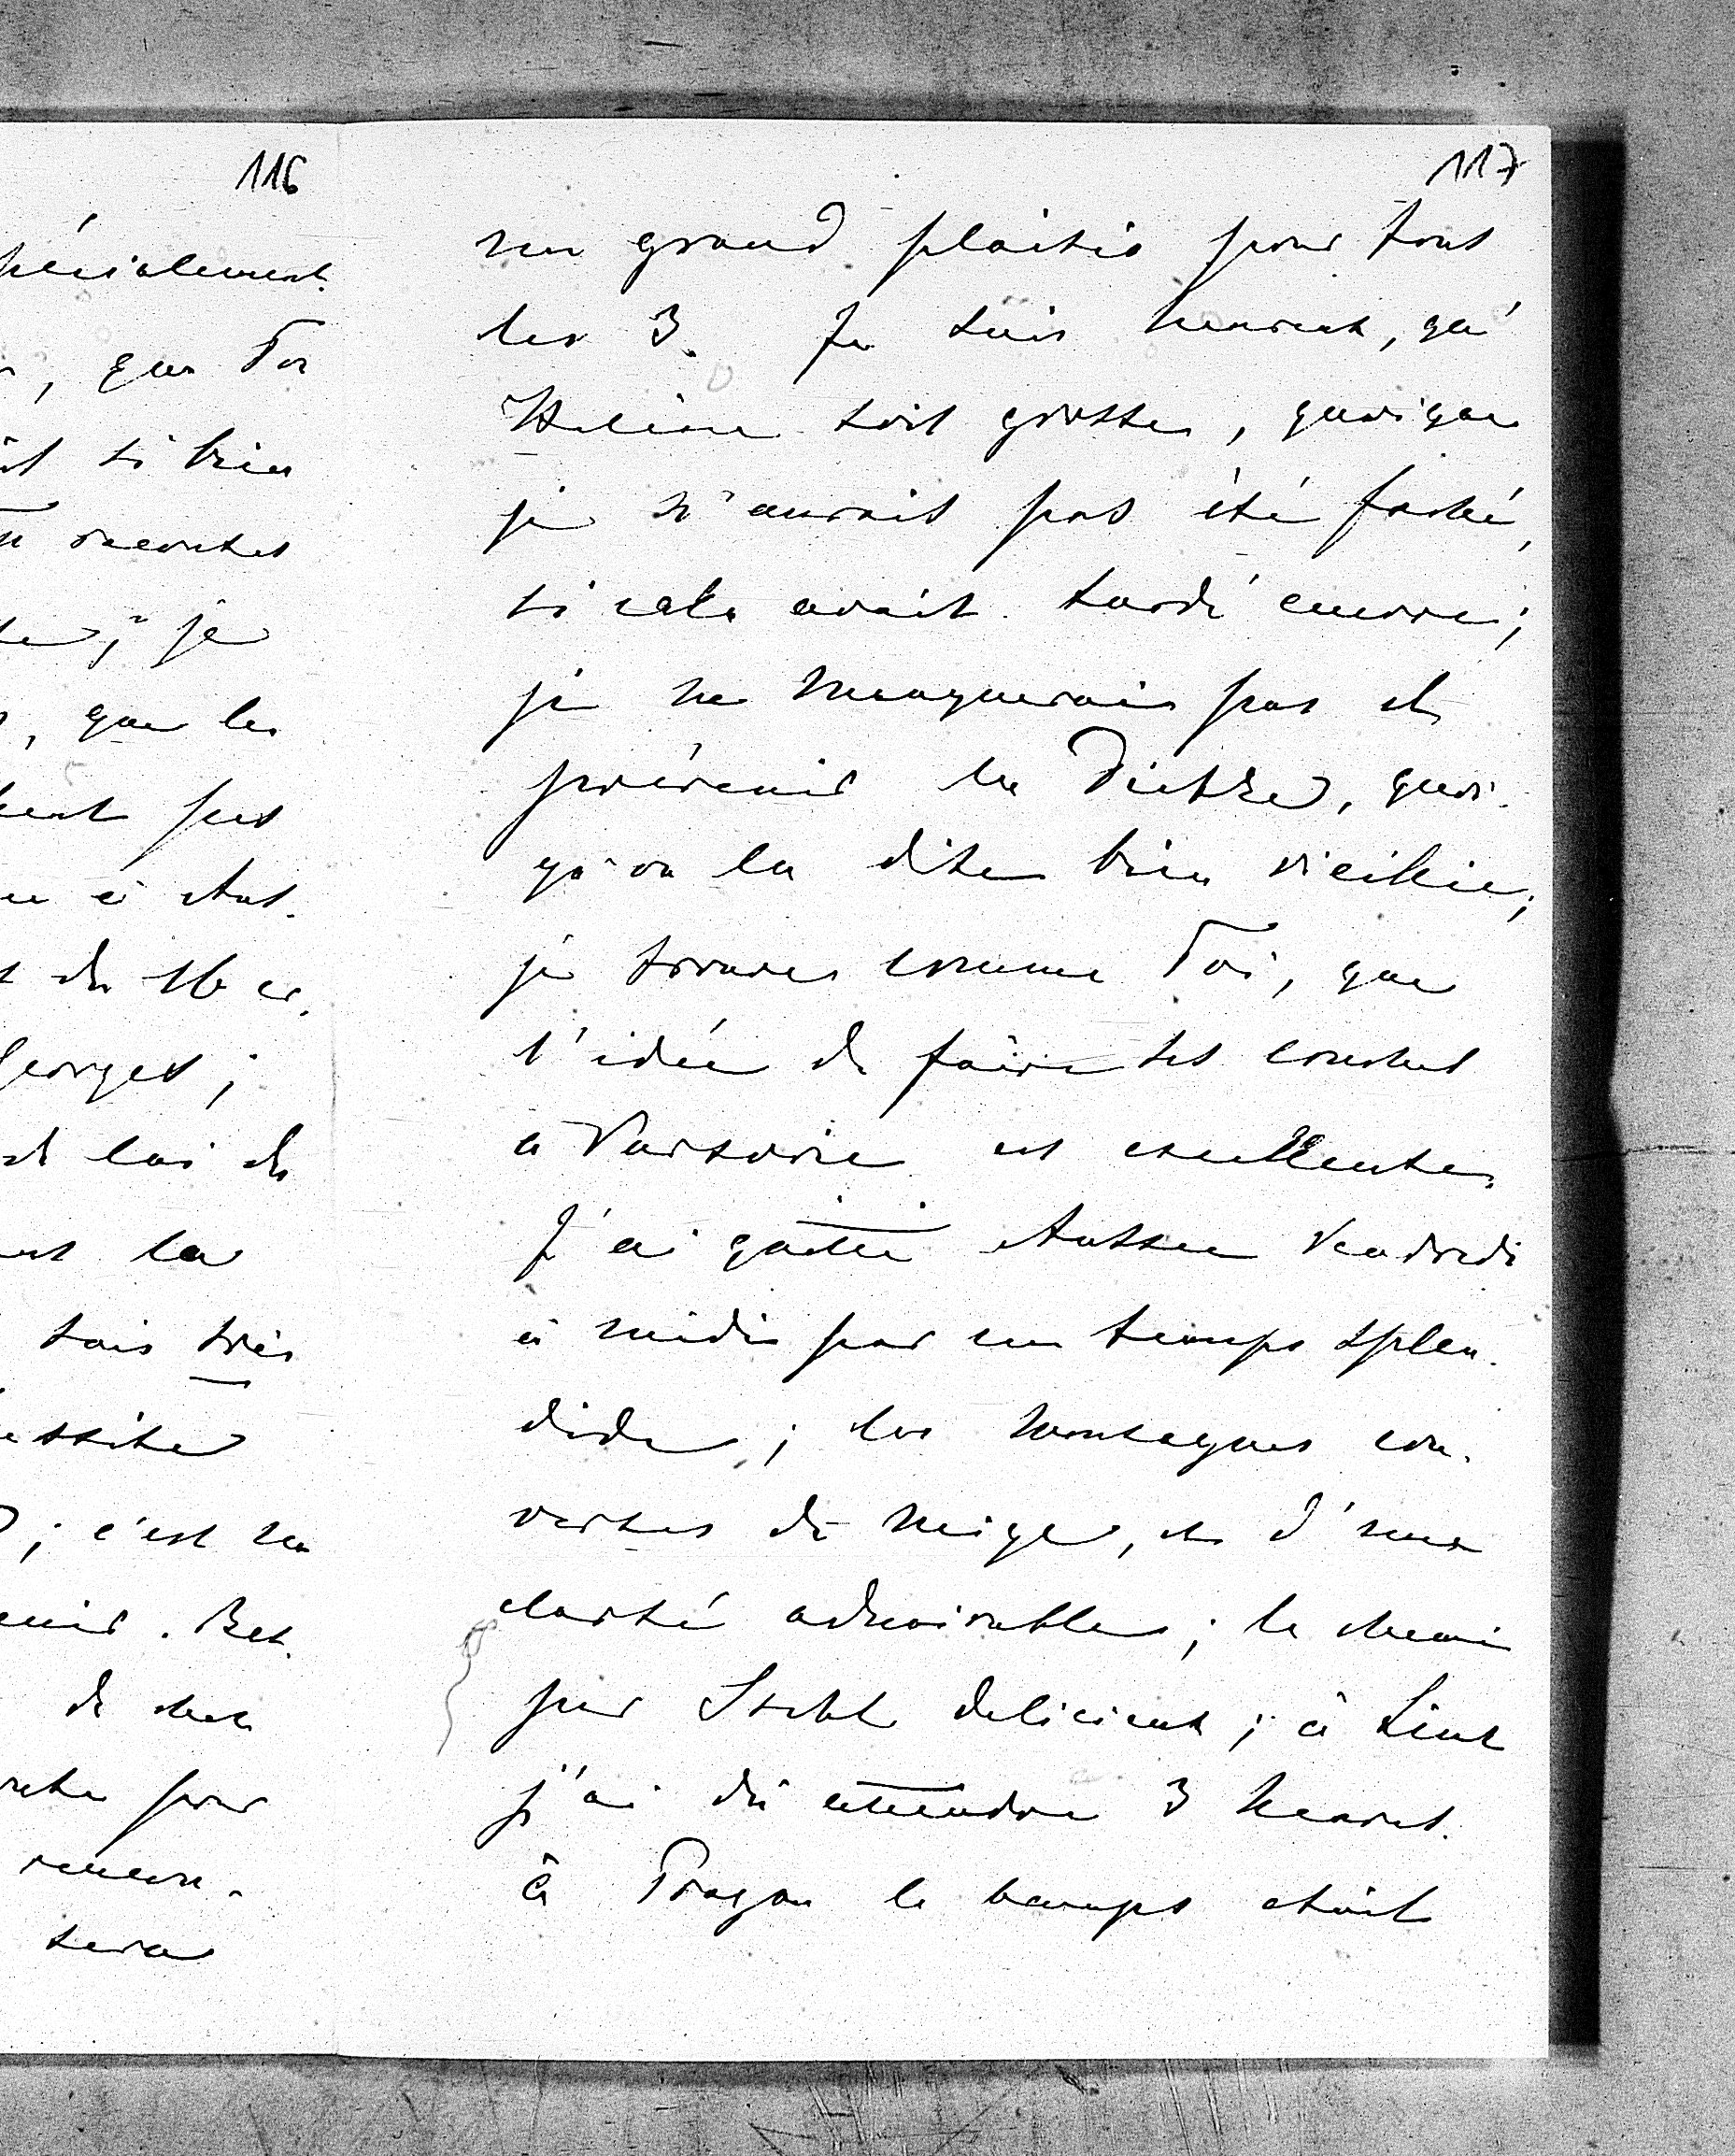 116
spécialement.
, que Toi
si bien
racontes
; je
, que les
pas
à Aus.
du 16 er.
Georges ;
lui de
la
suis très
; c'est un
. Bet.
de chez
pour
rencon.
sera
117
un grand plaisir pour tous
les 3. Je suis heureux, qu'
Hélène soit grosse, quoique
je n'aurais pas été faché,
si cela avait tardé encore ;
je ne manquerais pas de
prévenir la Dietze, quoi-
qu'on la dite bien vieillie ;
je trouve comme Toi, que
l'idée de faire ses couches
à Varsovie est excellente.
J'ai quitté Aussee Vendredi
à midi par un temps splen-
dide ; les montagnes cou-
vertes de neige, et d'une
clarté admirable ; le chemin
par Ischl delicieux ; à Linz
j'ai dû attendre 3 heures.
à Prague le temps était